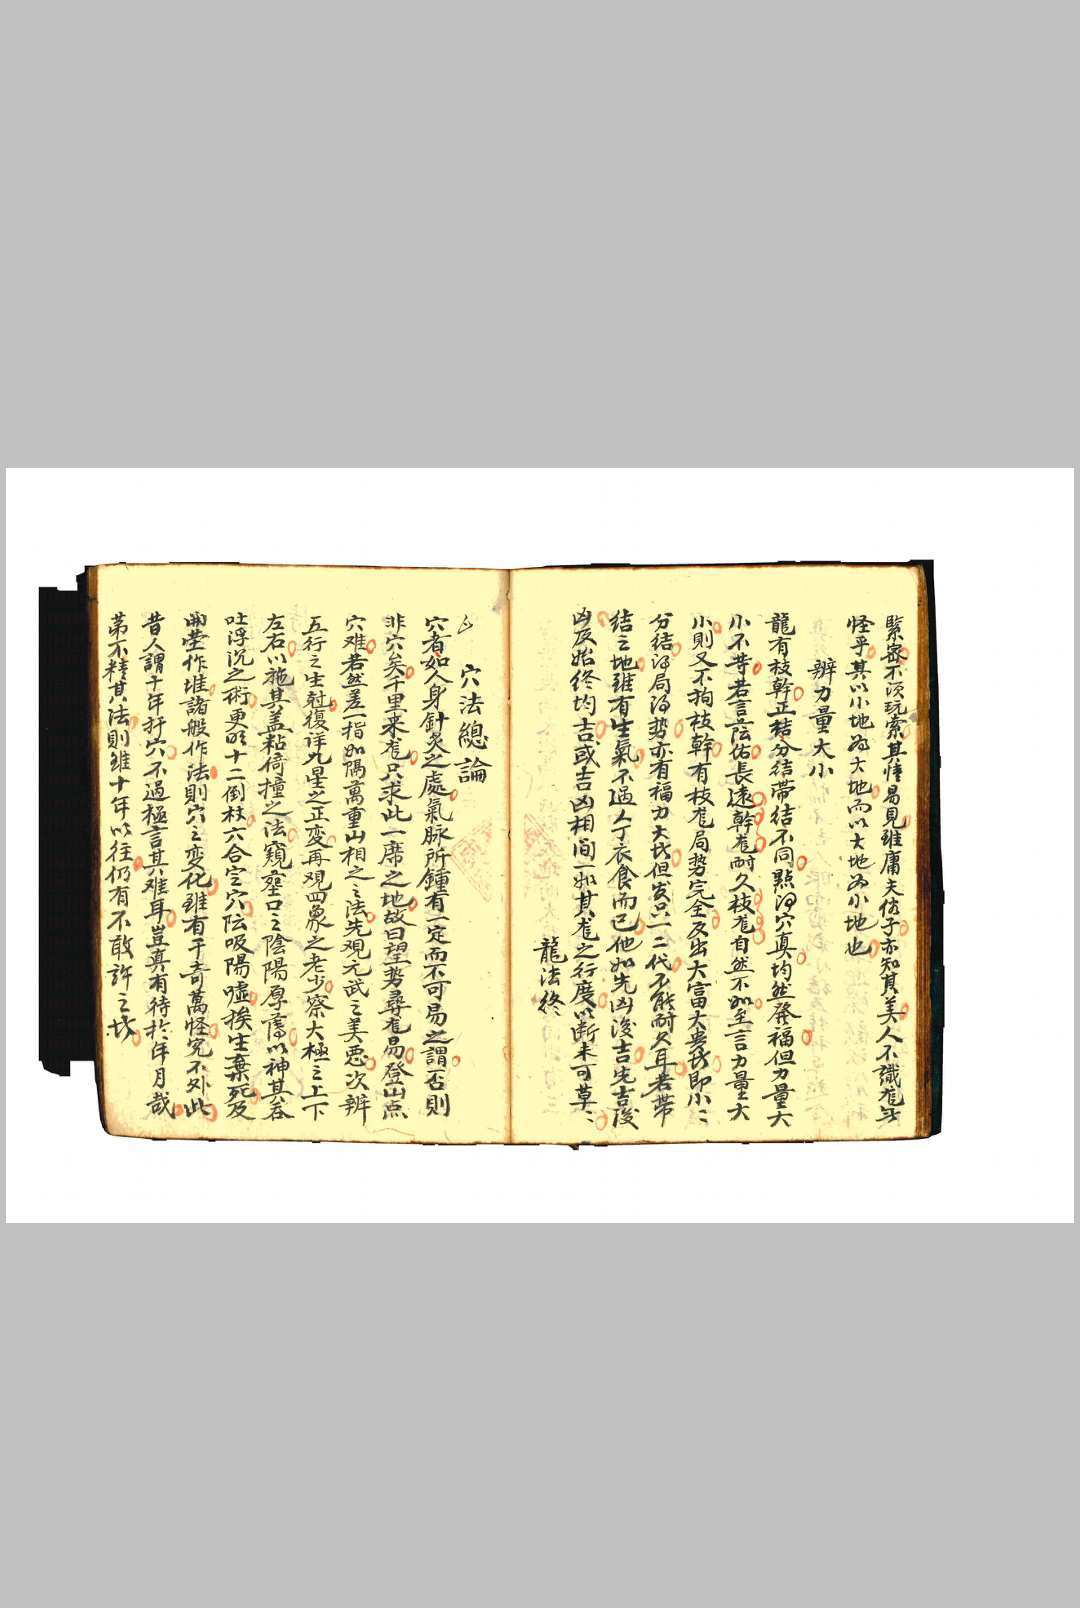 緊密不須玩索其情易見雖庸夫俗子亦知其美人不識尨无
怪乎其以小地為大地而以大地為小地也
辨力量大小
龍有枝幹正結分結帶結不同點淂穴真均然發福但力量大
小不等若言蔭佑長遠幹尨耐久枝尨自然不如至言力量大
小則又不拘枝幹有枝尨局勢完全反出大富大貴此即小二
分結淂局淂势亦有福力大此但发只一二代不能耐久耳若帶
結之地雖有生氣不過人丁衣食而已他如先凶後吉先吉後
凶及始終均吉或吉凶相間一如其尨之行度以斷未可草〻
龍法終
穴法總論
穴者如人身針灸之處氣脉所鍾有一定而不可易之謂否則
非穴矣千里来尨只求此一席之地故曰望势尋尨易登山点
穴难若然差一指如隔萬重山相之之法先观元武之美恶次辨
五行之生尅復详九星之正变再观四象之老少察大極之上下
左右以施其盖粘倚撞之法窺壑口之陰陽厚薄以神其吞
吐浮沉之術更明十二倒杖六合定穴阮吸陽嘘挨生棄死及
開茔作堆諸般作法則穴之变化雖有千奇萬怪究不外此
昔人謂十年扞穴不過極言其难耳豈真有待於年月哉
苐不精其法則雖十年以往仍有不敢許之坟